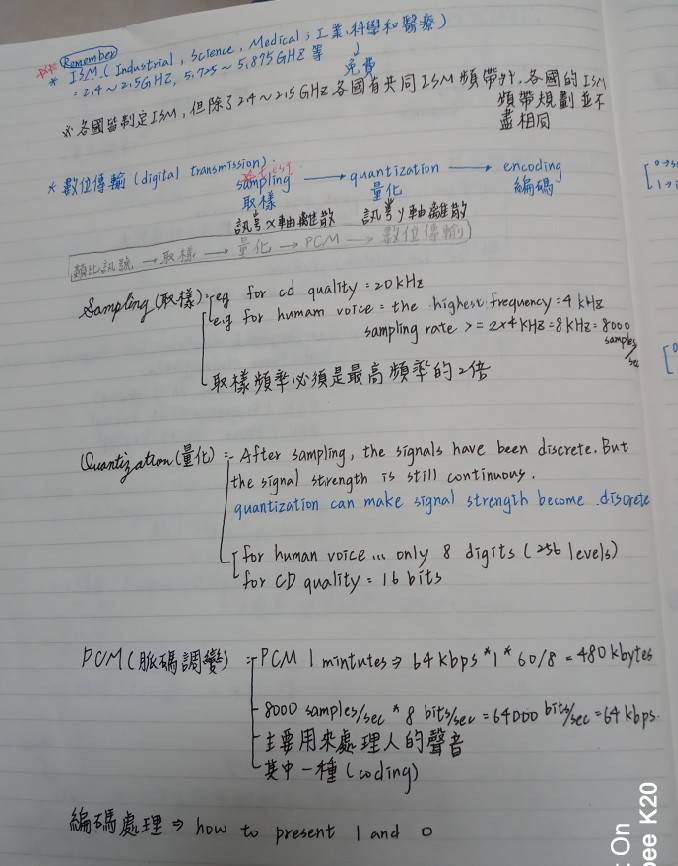 Remember
* ISM (Industrial, Science, Medical; 工業,科學和醫療)
= 2.4~2.5GHZ, 5.725~5.875GHZ等
↓
免費
※ 各國皆制定ISM, 但除了2.4~2.5GHz各國有共同ISM頻帶外,各國的ISM
頻帶規劃並不
盡相同
* 數位傳輸 (digital transmission):
sampling → quantization → encoding
取樣 量化 編碼
訊號x軸離散 訊號y軸離散
類比訊號 → 取樣 → 量化 → PCM → 數位傳輸
Sampling (取樣): eg for cd quality = 20kHz
e.g for humam voice = the highest frequency = 4 kHz
sampling rate >= 2x4kHz = 8kHz = 8000
samples/sec
取樣頻率必須是最高頻率的2倍
Quantization (量化) :- After sampling, the signals have been discrete. But
the signal strength is still continuous.
quantization can make signal strength become discrete
for human voice ... only 8 digits (256 levels)
for CD quality = 16 bits
PCM (脈碼調變) : PCM 1 mintutes ⇒ 64 kbps * 1 * 60/8 = 480 kbytes
8000 samples/sec * 8 bits/sec = 64000 bits/sec = 64 kbps.
主要用來處理人的聲音
其中一種 (coding)
編碼處理 ⇒ how to present 1 and 0
: On
pee K20